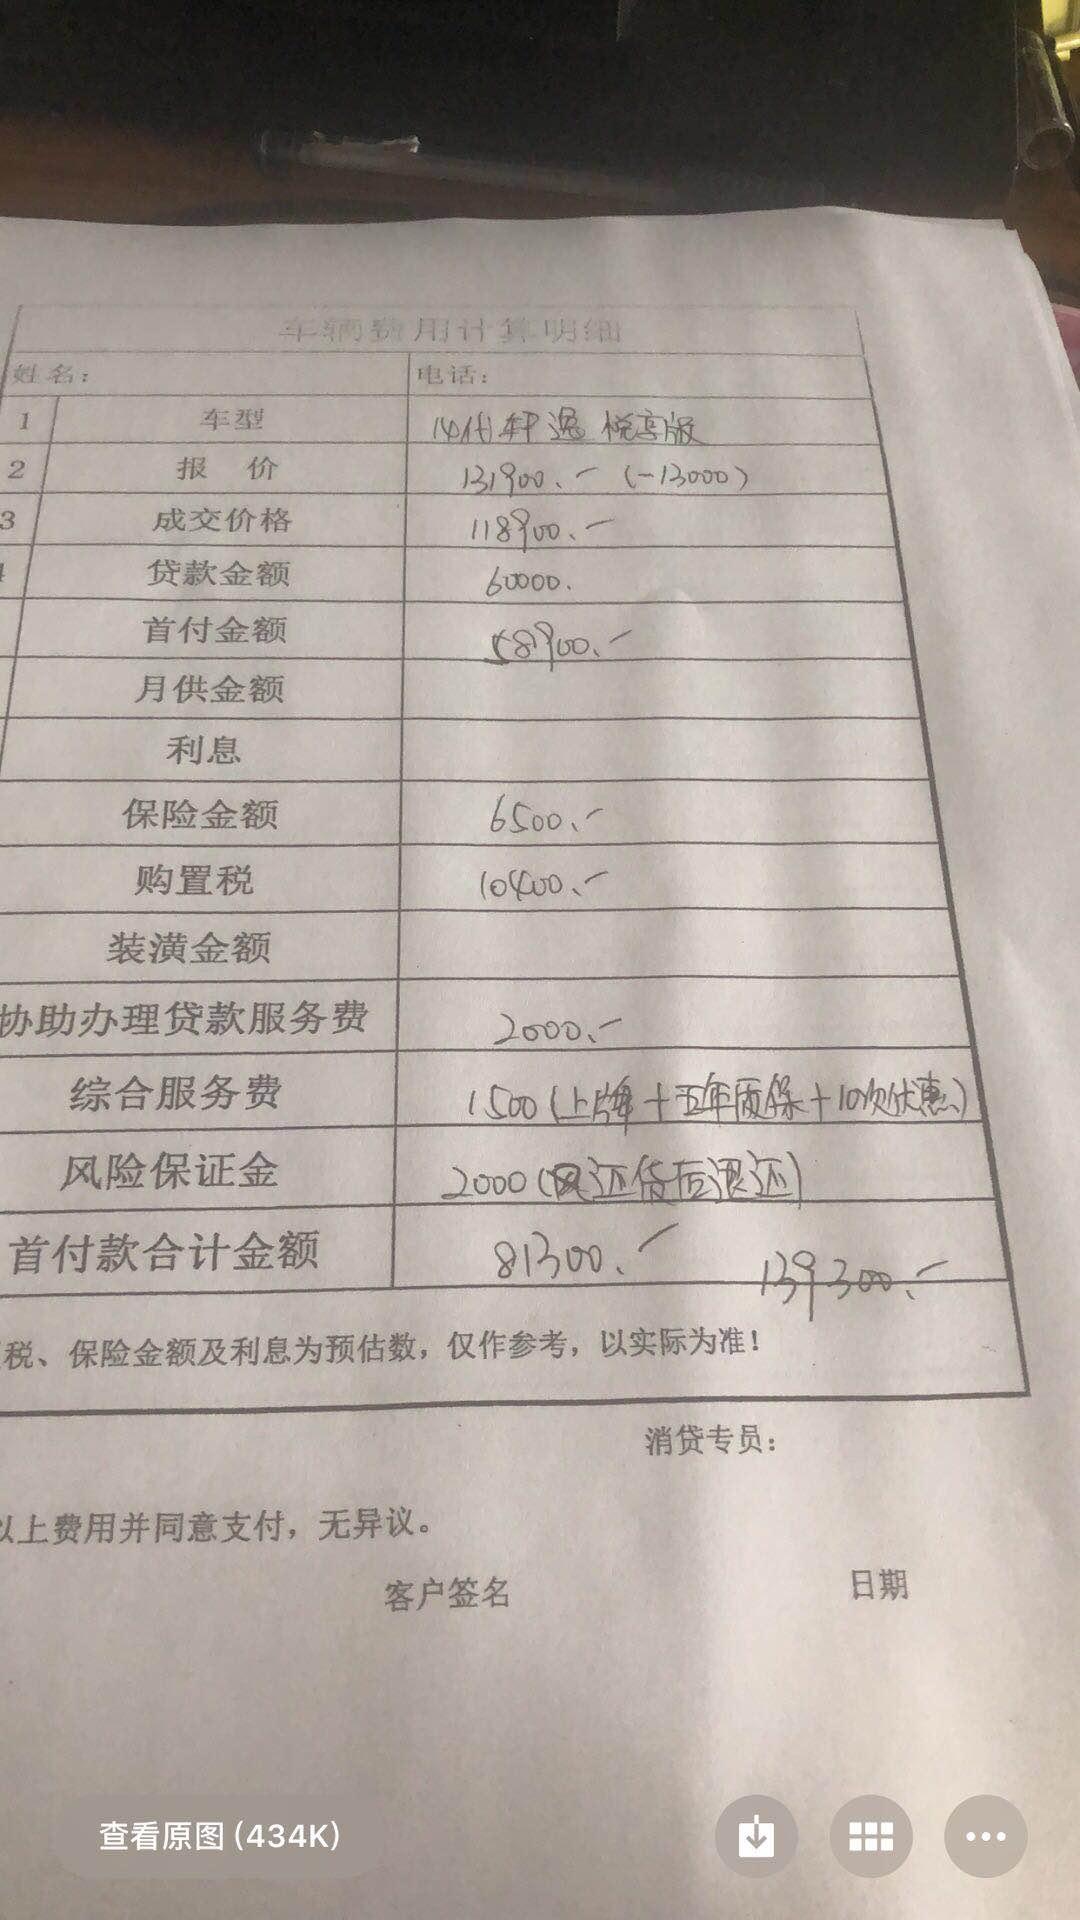 车辆费用计算明细
姓名： 电话：
1 车型 14代轩逸 悦享版
2 报 价 131900.- (-13000)
3 成交价格 118900.-
贷款金额 60000.
首付金额 58900.-
月供金额
利息
保险金额 6500.-
购置税 10400.-
装潢金额
协助办理贷款服务费 2000.-
综合服务费 1500(上牌+五年质保+10次优惠)
风险保证金 2000(还贷后退还)
首付款合计金额 81300.- 139300.-
税、保险金额及利息为预估数，仅作参考，以实际为准！
消贷专员：
以上费用并同意支付，无异议。
客户签名 日期
查看原图 (434K)